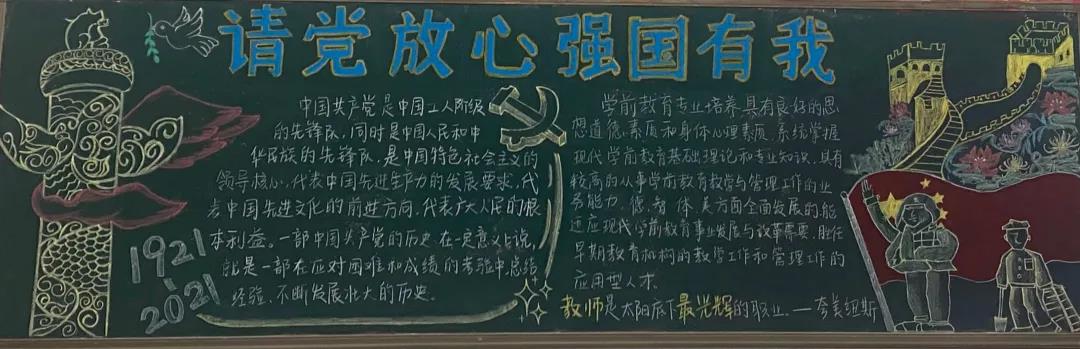 请党放心强国有我
中国共产党是中国工人阶级
的先锋队,同时是中国人民和中
华民族的先锋队,是中国特色社会主义的
领导核心,代表中国先进生产力的发展要求,代
表中国先进文化的前进方向,代表广大人民的根
本利益。一部中国共产党的历史,在一定意义上说,
就是一部在应对困难和成绩的考验中总结
经验、不断发展壮大的历史。
1921
2021
学前教育专业培养具有良好的思
想道德、素质和身体心理素质,系统掌握
现代学前教育基础理论和专业知识,具有
较高的从事学前教育教学与管理工作的业
务能力,德、智、体、美方面全面发展的,能
适应现代学前教育事业发展与改革需要,胜任
早期教育机构的教学工作和管理工作的
应用型人才.
教师是太阳底下最光辉的职业.——夸美纽斯